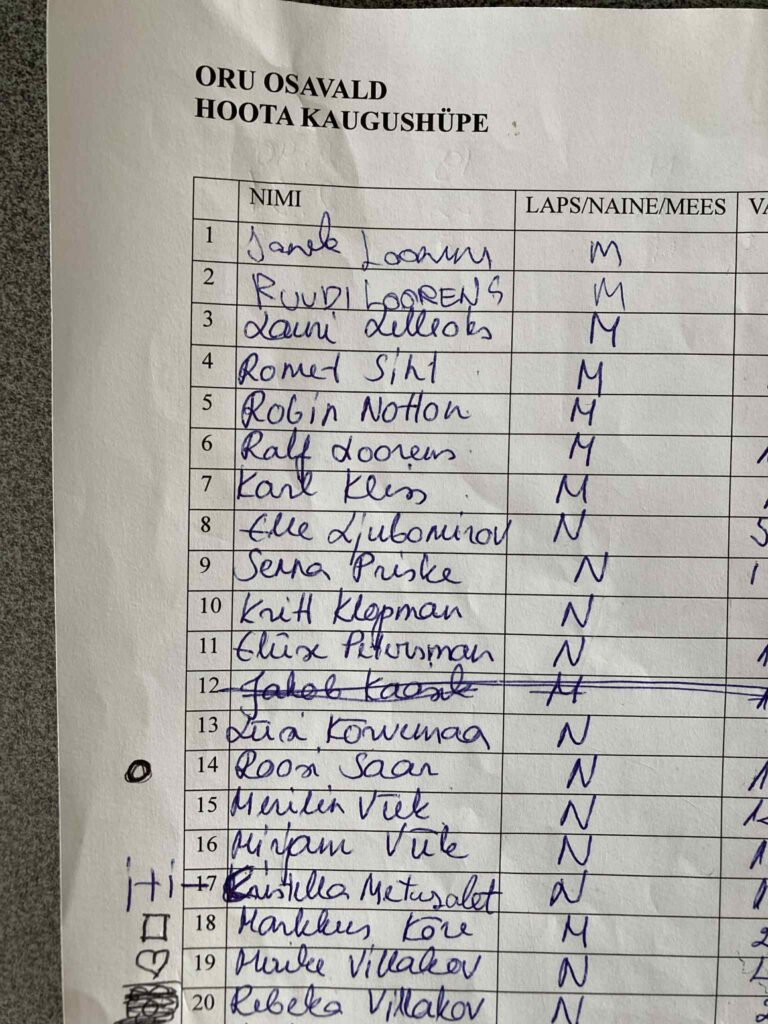 ORU OSAVALD
HOOTA KAUGUSHÜPE
NIMI LAPS/NAINE/MEES VA
1 Janek Loorens M
2 RUUDI LOORENS M
3 Lauri Lilleoks M
4 Romet Siht M
5 Robin Notton M
6 Ralf Loorens M 1
7 Karl Kliss M
8 Elle Ljubomirov N 5
9 Senna Priske N 1
10 Kritt Klopman N
11 Eliise Petersman N 1
12 Jakob Kaasik M 1
13 Liisi Kõrvemaa N
14 Roosi Saar N 1
15 Merilin Viik N 1
16 Mirjam Viik N 1
17 Kristella Metusalet N 1
18 Markkus Kõre M 2
19 Merike Villakov N
20 Rebeka Villakov N 2